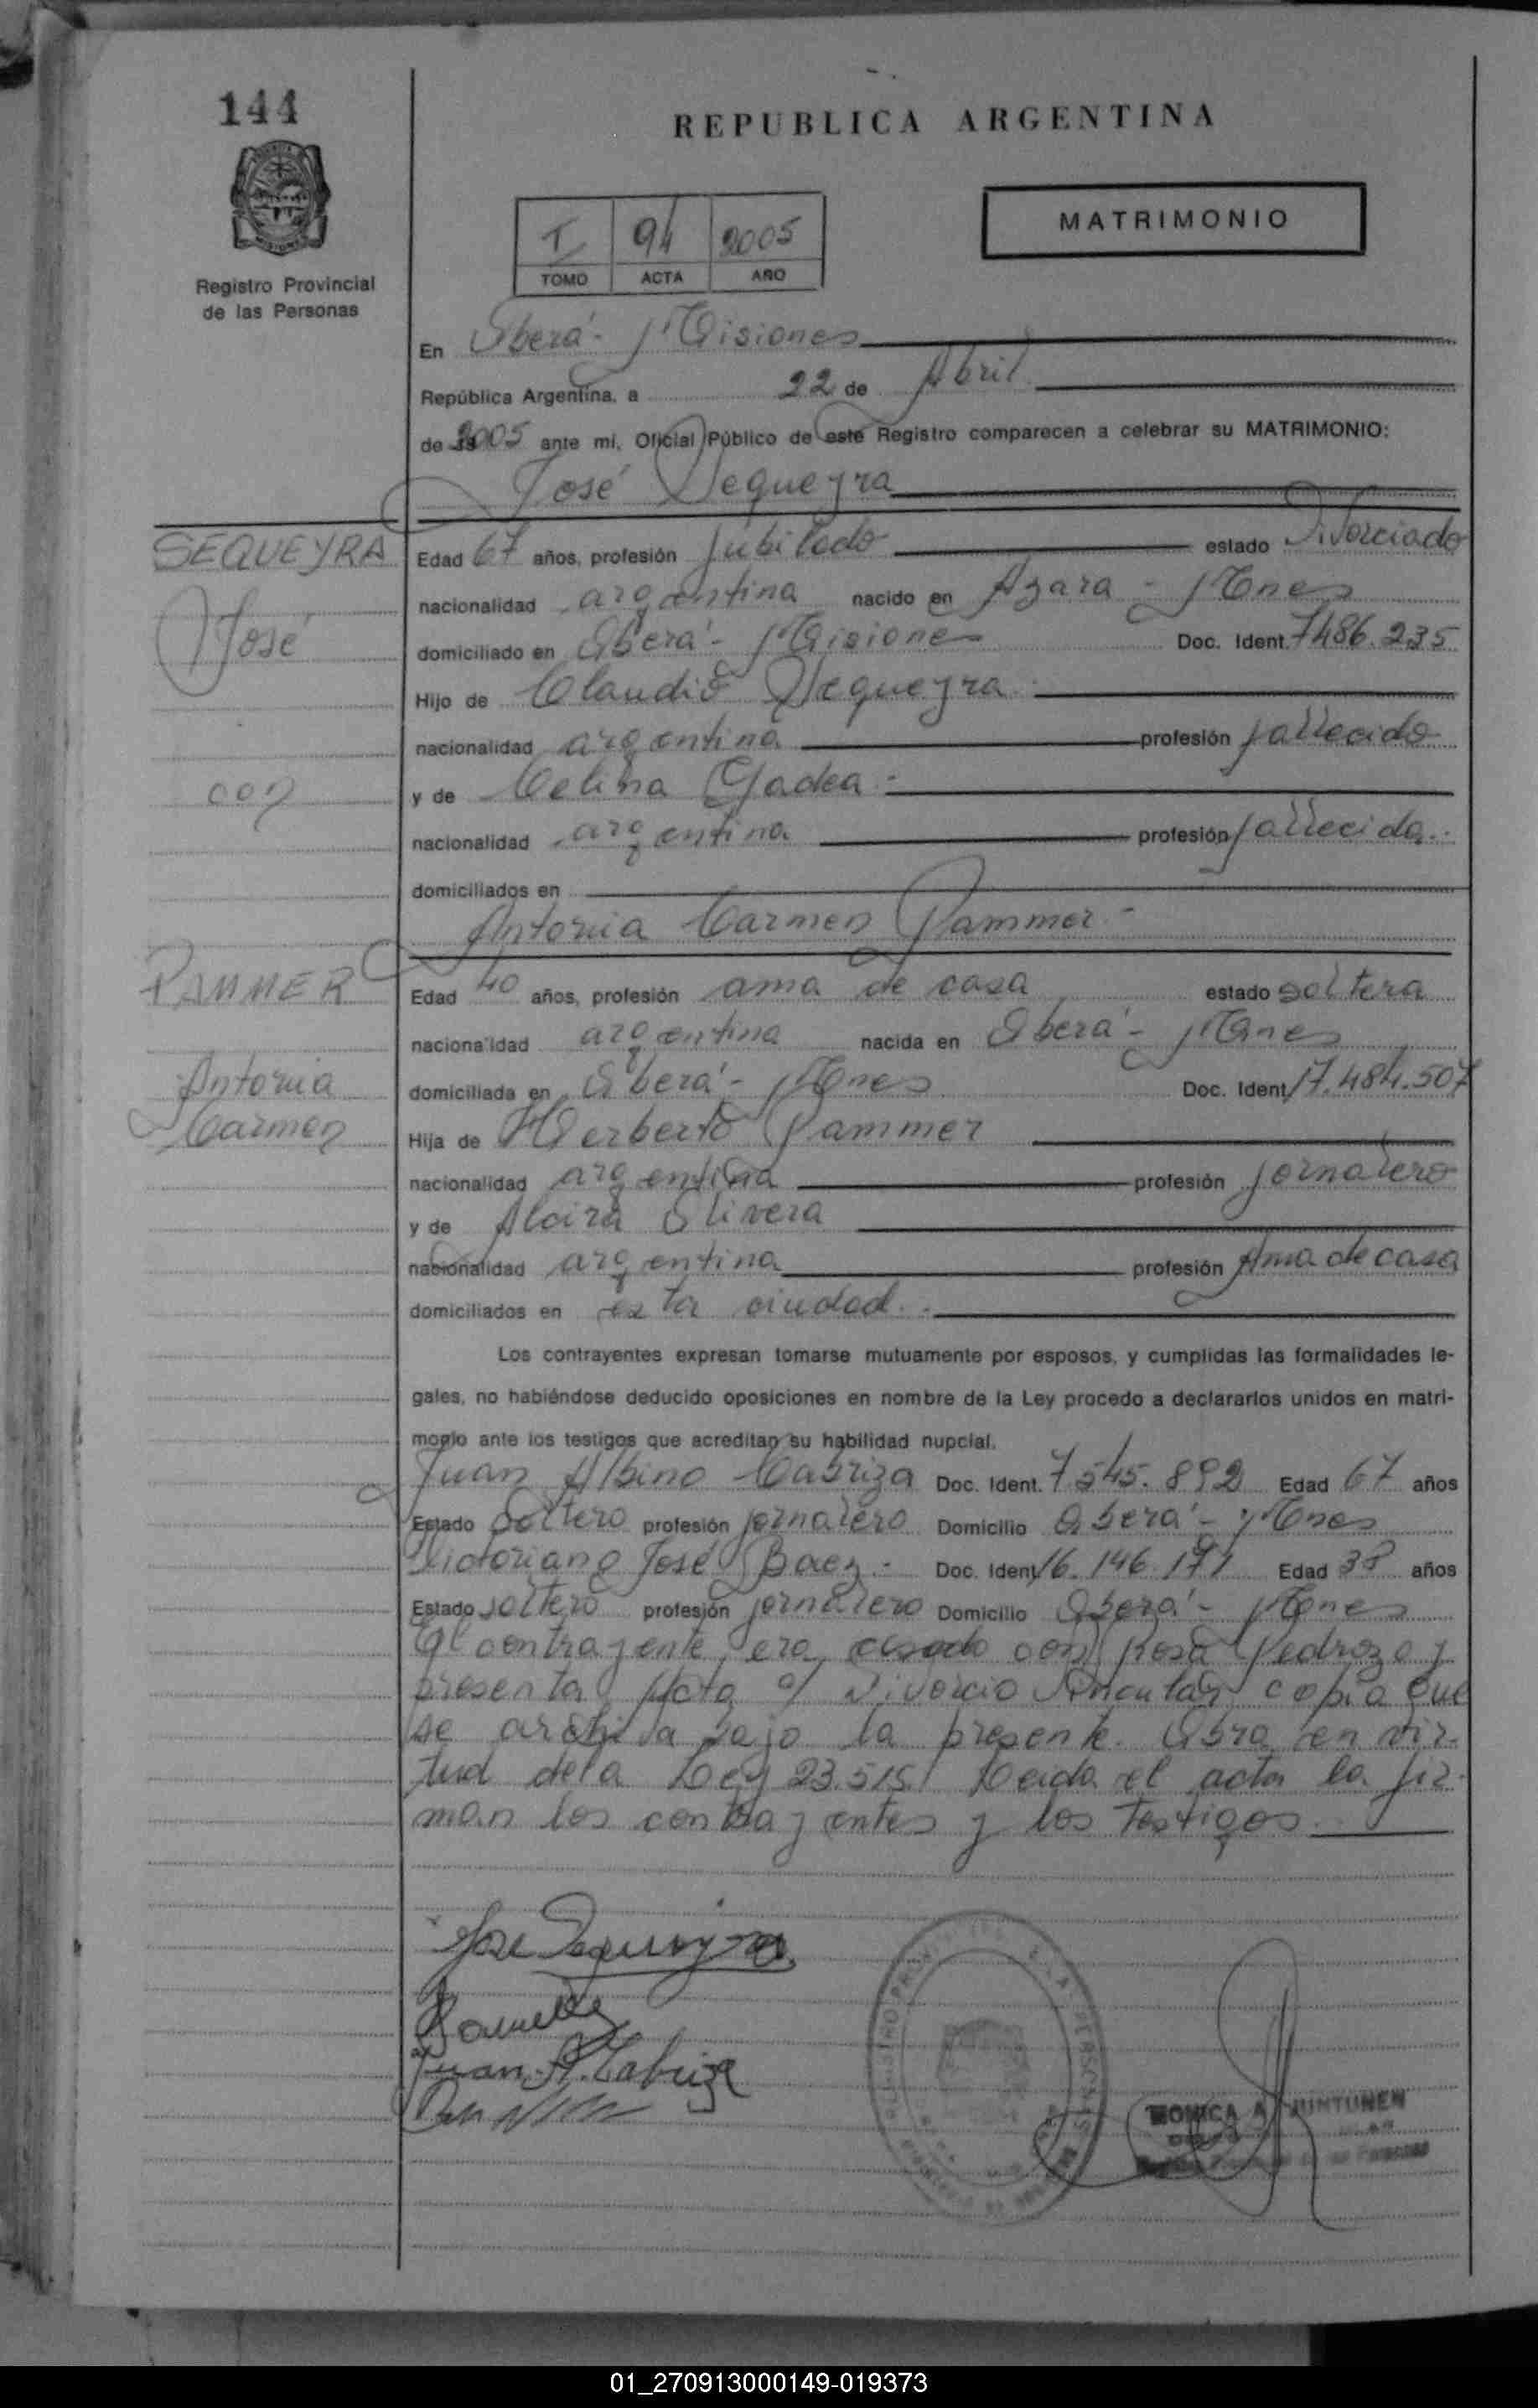 144
REPUBLICA ARGENTINA
MATRIMONIO
I 94 2005
TOMO ACTA AÑO
Registro Provincial
de las Personas
En Oberá - Misiones
República Argentina, a 22 de Abril
de 2005 ante mí, Oficial Público de este Registro comparecen a celebrar su MATRIMONIO:
José Sequeyra
SEQUEYRA
José
con
Edad 67 años, profesión Jubilado estado Divorciado
nacionalidad argentina nacido en Azara - Mnes
domiciliado en Oberá - Misiones Doc. Ident. 7486.235
Hijo de Claudio Sequeyra
nacionalidad argentina profesión fallecido
y de Celina Gadea -
nacionalidad argentina profesión fallecida
domiciliados en
Antonia Carmen Pammer -
PAMMER
Antonia
Carmen
Edad 40 años, profesión ama de casa estado soltera
nacionalidad argentina nacida en Oberá - Mnes
domiciliada en Oberá - Mnes Doc. Ident. 17.484.507
Hija de Herberto Pammer
nacionalidad argentina profesión jornalero
y de Alcira Olivera
nacionalidad argentina profesión Ama de casa
domiciliados en esta ciudad.
Los contrayentes expresan tomarse mutuamente por esposos, y cumplidas las formalidades le-
gales, no habiéndose deducido oposiciones en nombre de la Ley procedo a declararlos unidos en matri-
monio ante los testigos que acreditan su habilidad nupcial.
Juan Albino Cabriza Doc. Ident. 7.545.892 Edad 67 años
Estado Soltero profesión jornalero Domicilio Oberá - Mnes
Victoriano José Baez - Doc. Ident. 16.146.171 Edad 38 años
Estado soltero profesión jornalero Domicilio Oberá - Mnes
El contrayente era casado con Rosa Pedrozo y
presenta Acta o/ Divorcio Vincular copia que
se archiva bajo la presente. Obra en vir-
tud de la Ley 23.515. Leida el acta la fir-
man los contrayentes y los testigos.
Jose Sequeyra
Juan A. Cabriza
MONICA A JUNTUNEN
01_270913000149-019373